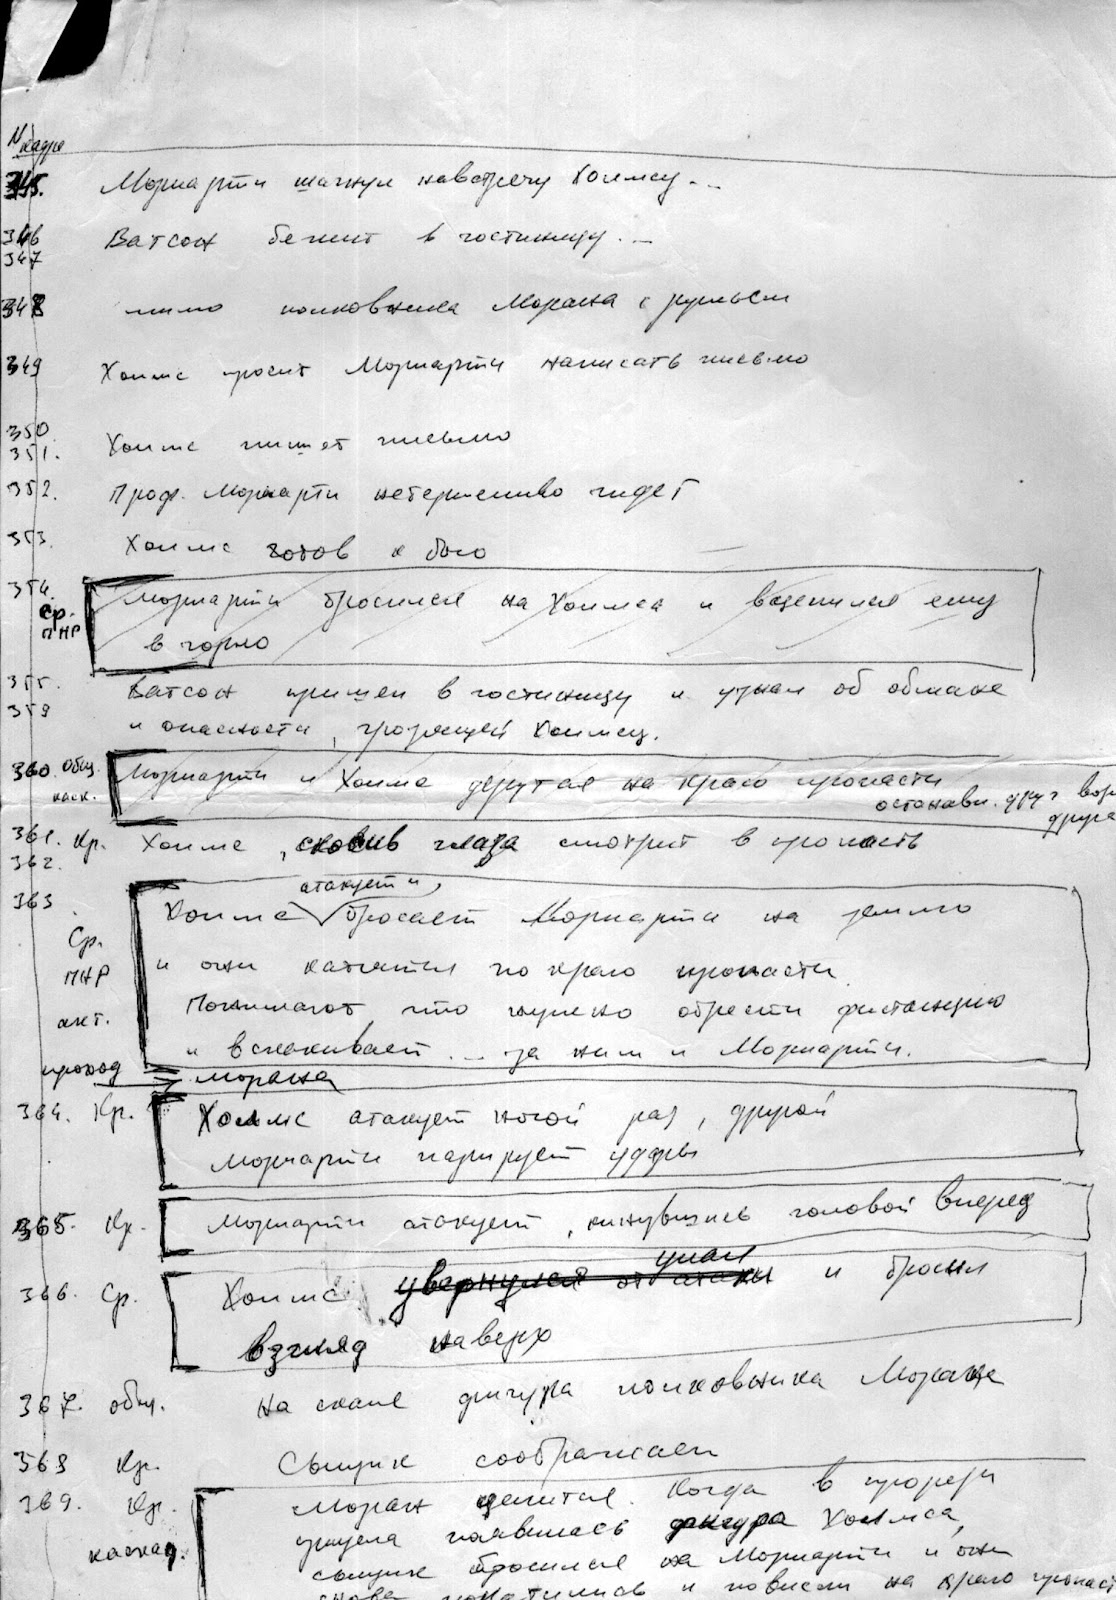 N кадра
345. Мориарти шагнул навстречу Холмсу...
346 Ватсон бежит в гостиницу...
347
348 мимо полковника Морана с ружьем
349 Холмс просит Мориарти написать письмо
350
351. Холмс пишет письмо
352. Проф. Мориарти нетерпеливо ждет
353. Холмс готов к бою
354. Мориарти бросился на Холмса и вцепился ему
Ср.
ПНР в горло
355. Ватсон пришел в гостиницу и узнал об обмане
359 и опасности, грозящей Холмсу.
360. общ. Мориарти и Холмс дерутся на краю пропасти
каск. останови. друг возл
друга
361. Кр. Холмс, скосив глаза смотрит в пропасть
362.
атакует и,
363 Холмс бросает Мориарти на землю
Ср. и они катятся по краю пропасти.
ПНР Понимают, что нужно обрести дистанцию
акт. и вскакивает... за ним и Мориарти.
проход Морана
364. Кр. Холмс атакует ногой раз, другой
Мориарти парирует удары
365. Кр. Мориарти атакует, кинувшись головой вперед
упал
366. Ср. Холмс увернулся от атаки и бросил
взгляд наверх
367. общ. На скале фигура полковника Морана
368 Кр. Сыщик соображает
369. Кр. Моран целится. Когда в прорези
прицела появилась фигура Холмса,
каскад. сыщик бросился на Мориарти и они
снова покатились и повисли на краю пропаст